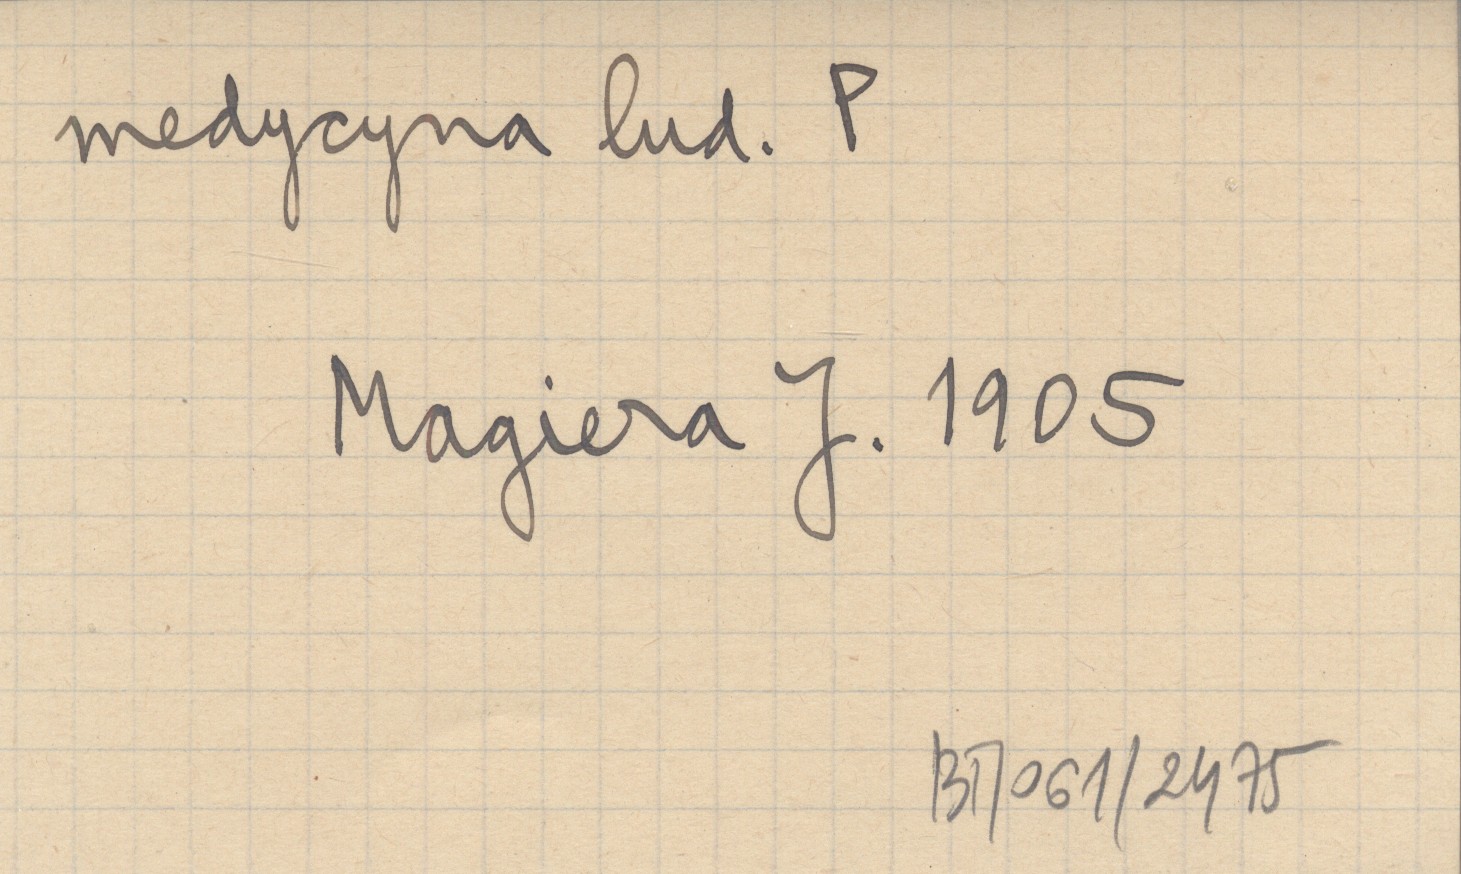 medycyna lud. P
Magiera J. 1905
BT/061/2475